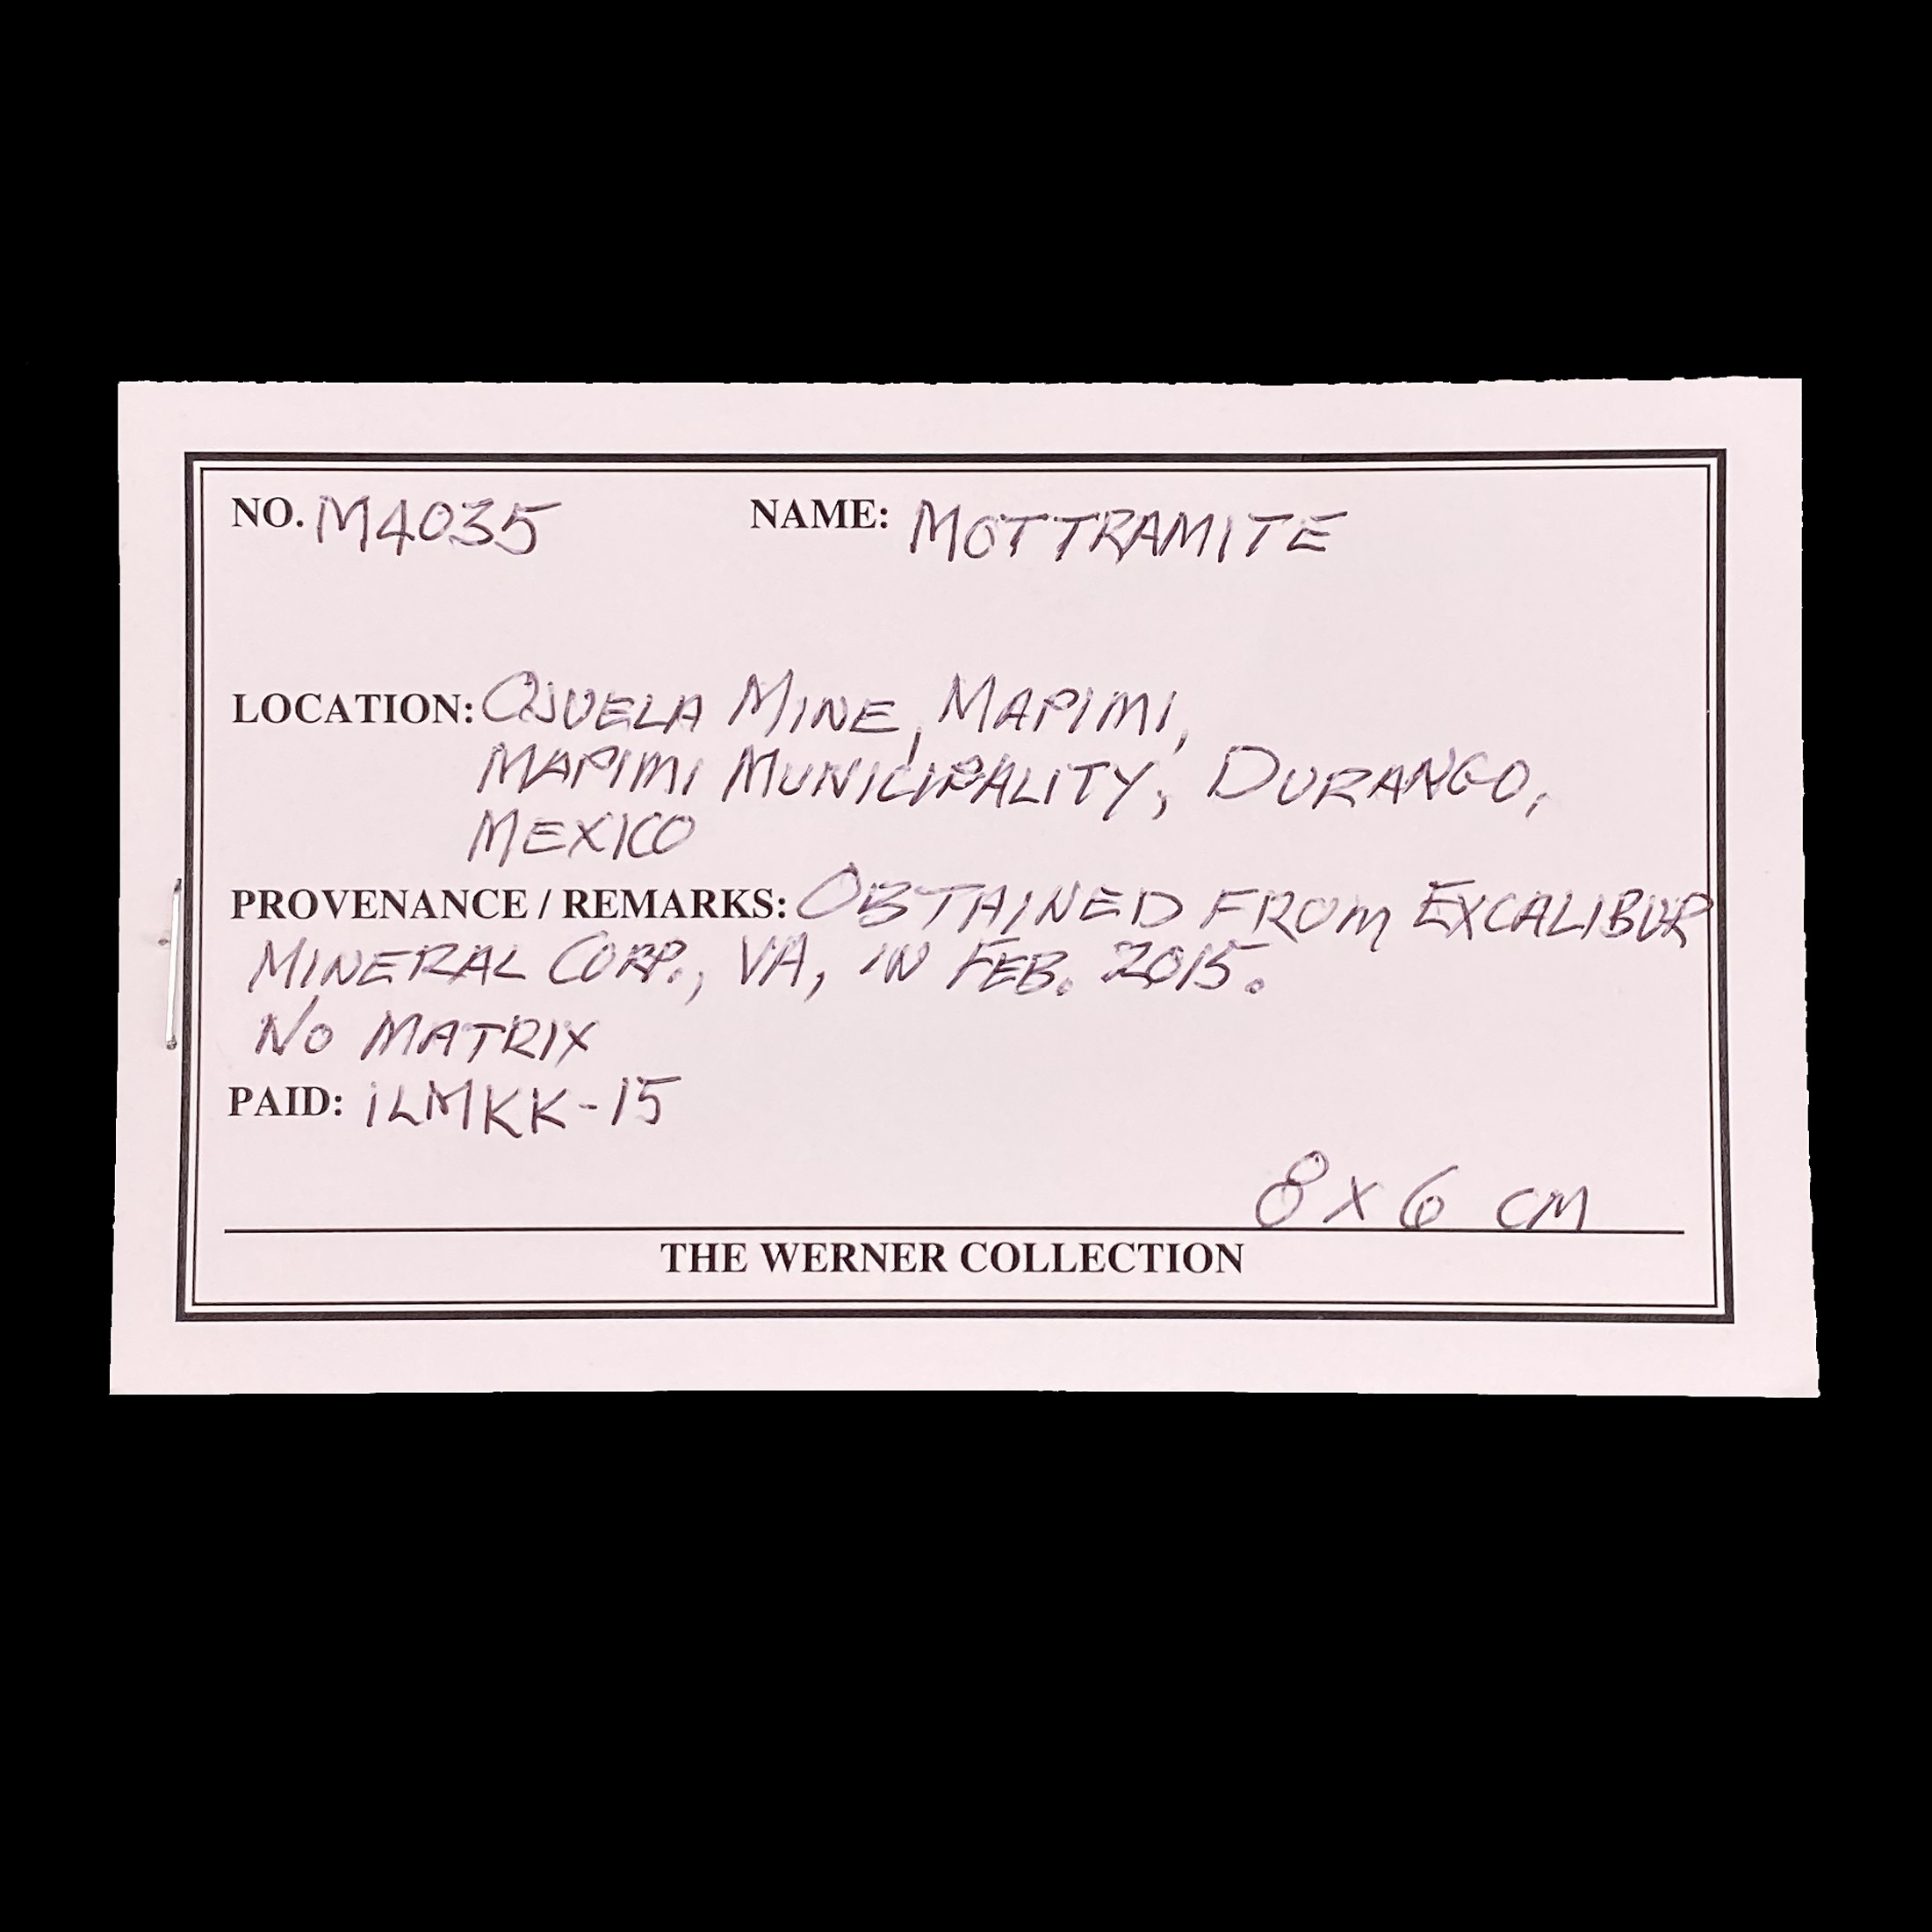 NO. M4035 NAME: MOTTRAMITE
LOCATION: OJUELA MINE, MAPIMI,
MAPIMI MUNICIPALITY, DURANGO,
MEXICO
PROVENANCE / REMARKS: OBTAINED FROM EXCALIBUR
MINERAL CORP., VA, IN FEB. 2015.
NO MATRIX
PAID: iLMKK-15
8 X 6 CM
THE WERNER COLLECTION